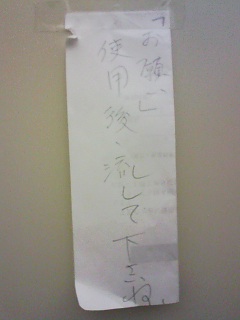 「お願い」
使用後、流して下さいね、